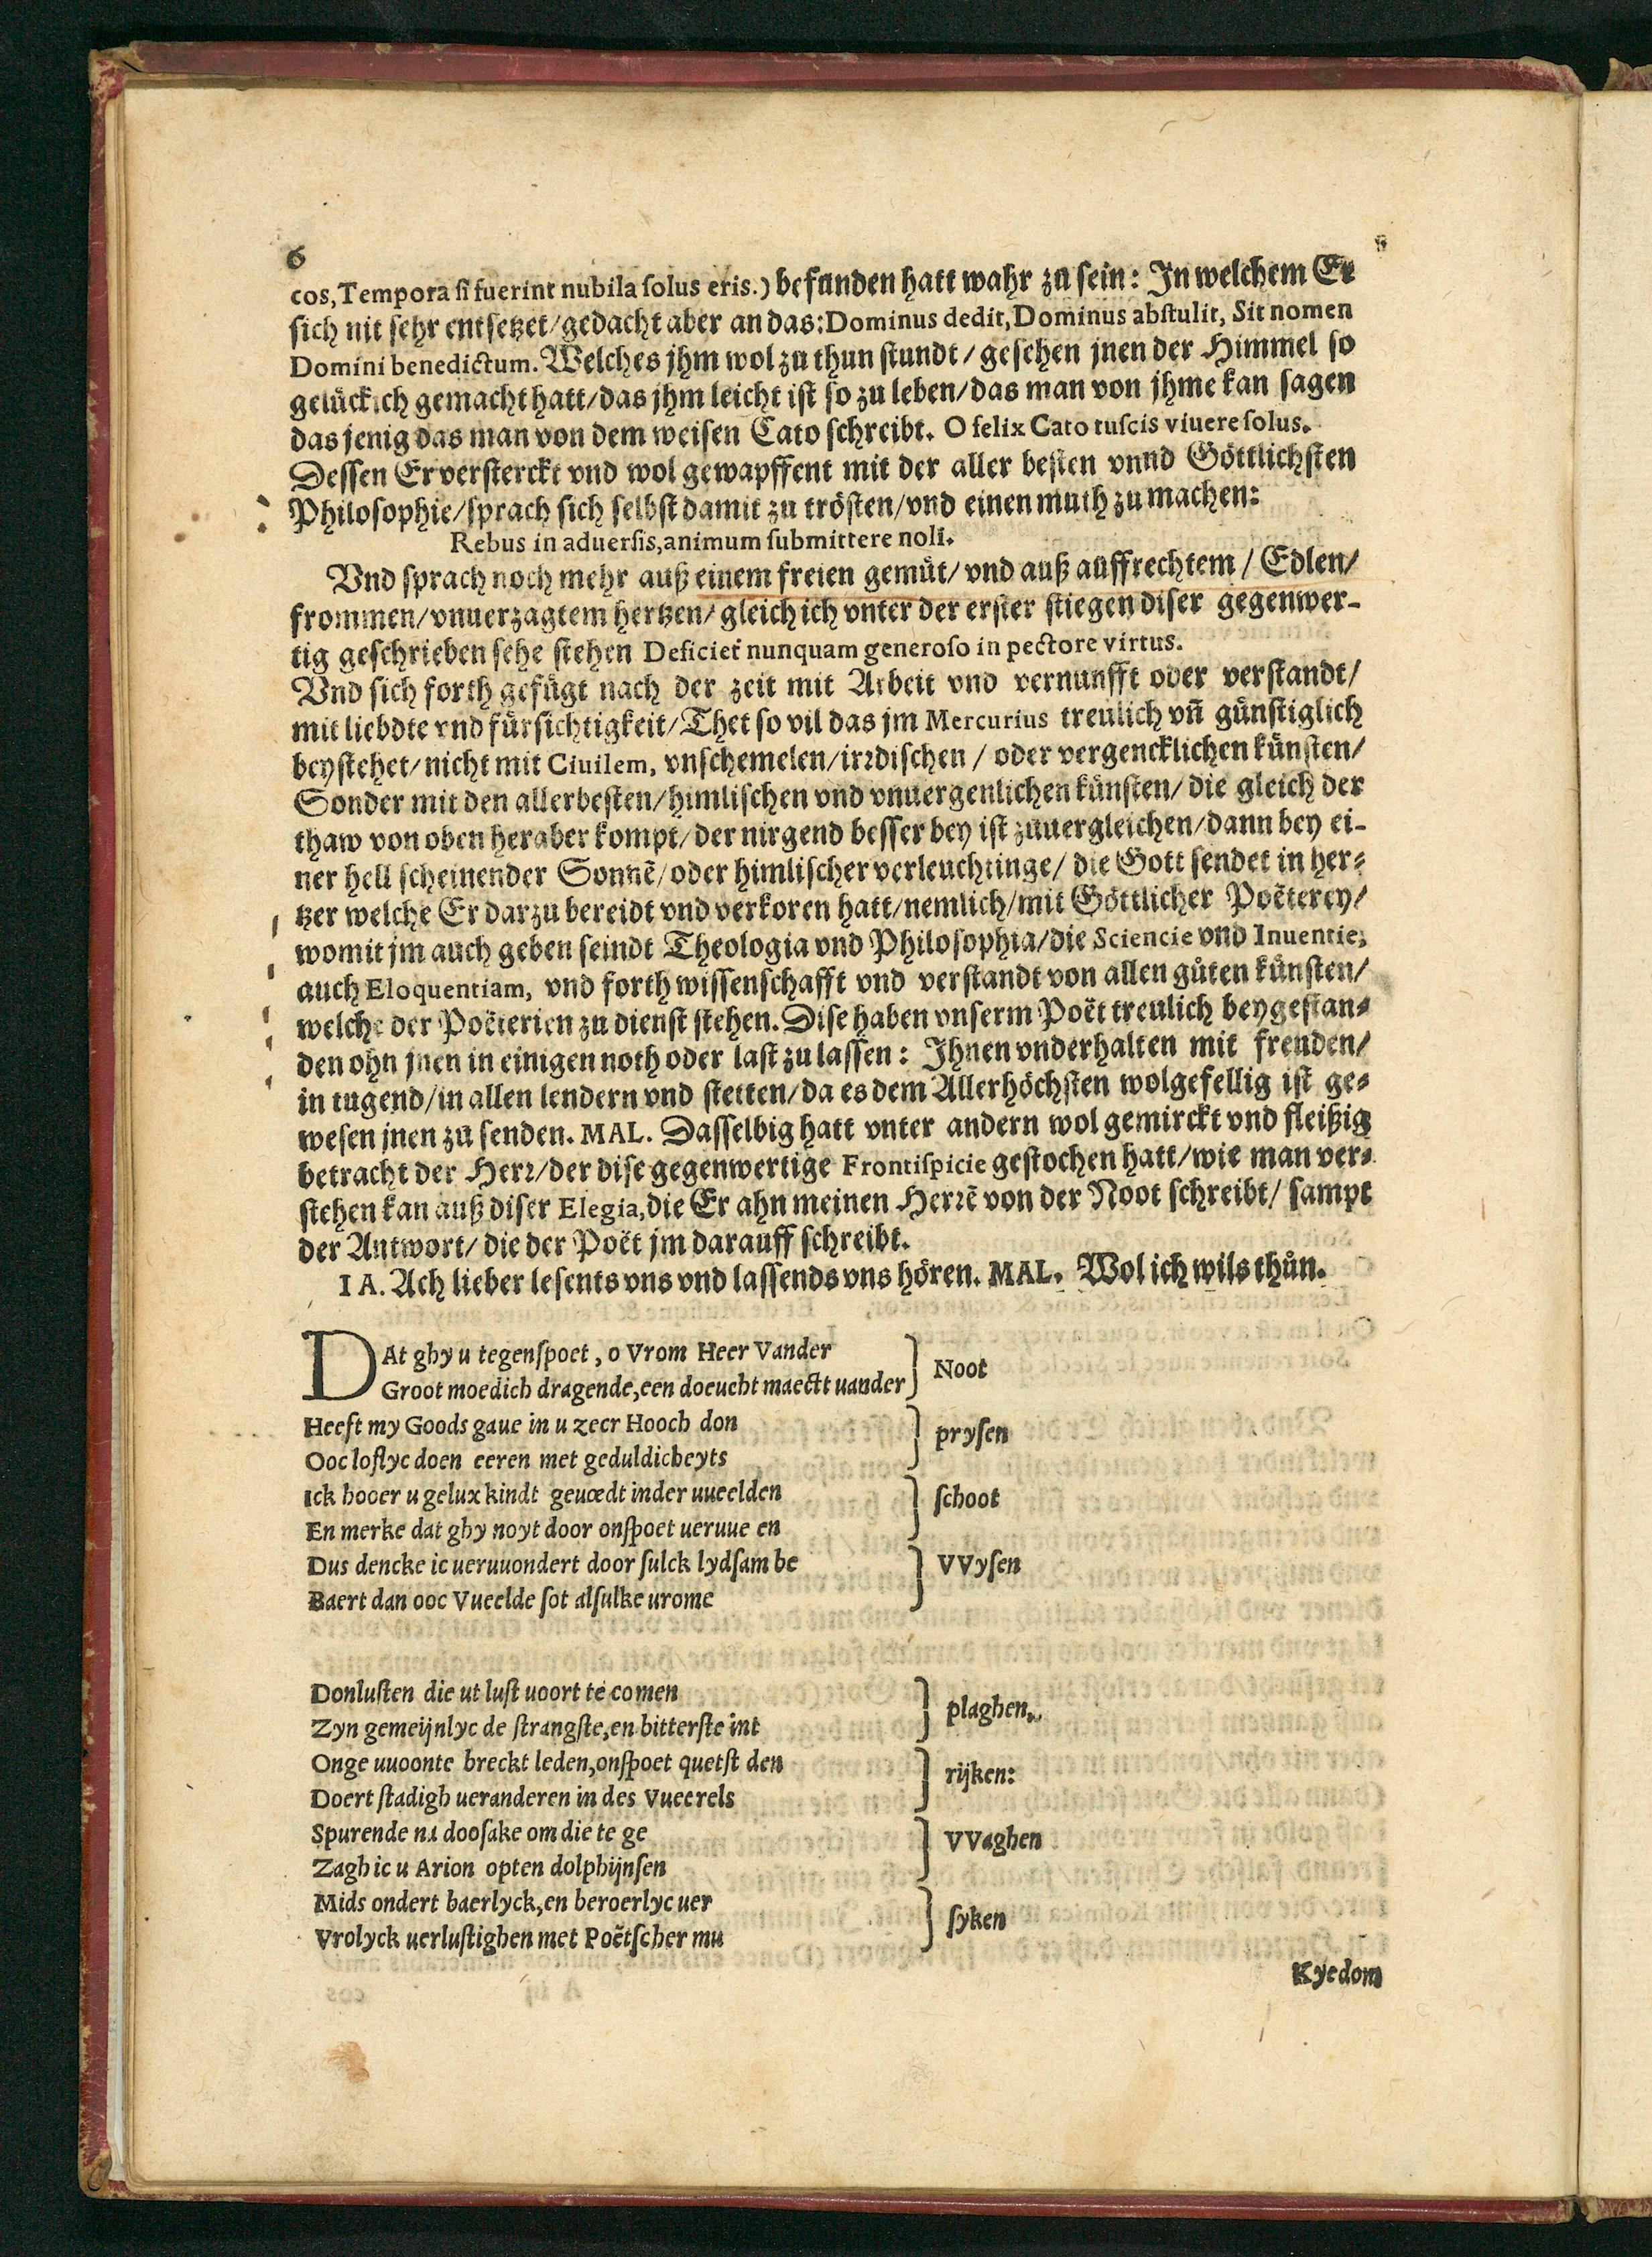 6
cos, Tempora ſi fuerint nubila ſolus eris.) befunden hatt wahr zu ſein: In welchem Er
ſich nit ſehr entſetzet/gedacht aber an das: Dominus dedit, Dominus abſtulit, Sit nomen
Domini benedictum. Welches jhm wol zu thun ſtundt/ geſehen jnen der Himmel ſo
gelücklich gemacht hatt/das jhm leicht iſt ſo zu leben/das man von jhme kan ſagen
das jenig das man von dem weiſen Cato ſchreibt. O felix Cato tuſcis viuere ſolus.
Deſſen Er verſterckt vnd wol gewapffent mit der aller beſten vnnd Göttlichſten
Philoſophie/ſprach ſich ſelbſt damit zu tröſten/vnd einen muth zu machen:
Rebus in aduerſis, animum ſubmittere noli.
Vnd ſprach noch mehr auß einem freien gemüt/ vnd auß auffrechtem/ Edlen/
frommen/vnuerzagtem hertzen/ gleich ich vnter der erſter ſtiegen diſer gegenwer-
tig geſchrieben ſehe ſtehen Deficiet nunquam generoſo in pectore virtus.
Vnd ſich forth gefügt nach der zeit mit Arbeit vnd vernunfft oder verſtandt/
mit liebdte vnd fürſichtigkeit/Thet ſo vil das jm Mercurius treulich vñ günſtiglich
beyſtehet/nicht mit Ciuilem, vnſchemelen/irꝛdiſchen/ oder vergencklichen künſten/
Sonder mit den allerbeſten/himliſchen vnd vnuergenlichen künſten/ die gleich der
thaw von oben heraber kompt/der nirgend beſſer bey iſt zuuergleichen/dann bey ei-
ner hell ſcheinender Sonnē/oder himliſcher verleuchtinge/ die Gott ſendet in her-
tzer welche Er darzu bereidt vnd verkoren hatt/nemlich/mit Göttlicher Poëterey/
womit jm auch geben ſeindt Theologia vnd Philoſophia/die Sciencie vnd Inuentie,
auch Eloquentiam, vnd forth wiſſenſchafft vnd verſtandt von allen gůten künſten/
welche der Poëterien zu dienſt ſtehen. Diſe haben vnſerm Poët treulich beygeſtan-
den ohn jnen in einigen noth oder laſt zu laſſen: Ihnen vnderhalten mit freuden/
in tugend/in allen lendern vnd ſtetten/da es dem Allerhöchſten wolgefellig iſt ge-
weſen jnen zu ſenden. MAL. Daſſelbig hatt vnter andern wol gemirckt vnd fleißig
betracht der Herꝛ/der diſe gegenwertige Frontiſpicie geſtochen hatt/wie man ver-
ſtehen kan auß diſer Elegia, die Er ahn meinen Herꝛē von der Noot ſchreibt/ ſampt
der Antwort/ die der Poët jm darauff ſchreibt.
IA. Ach lieber leſents vns vnd laſſends vns hören. MAL. Wol ich wils thůn.
DAt ghy u tegenſpoet, o Vrom Heer Vander
Groot moedich dragende, een doeucht maectt uander } Noot
Heeft my Goods gaue in u zeer Hooch don
Ooc loflyc doen eeren met geduldicheyts } pryſen
Ick hooer u gelux kindt geuoedt inder uueelden
En merke dat ghy noyt door onſpoet ueruue en } ſchoot
Dus dencke ic ueruuondert door ſulck lydſam be
Baert dan ooc Vueelde ſot alſulke urome } VVyſen
Donluſten die ut luſt uoort te comen
Zyn gemeijnlyc de ſtrangſte, en bitterſte int } plaghen,
Onge uuoonte breckt leden, onſpoet quetſt den
Doert ſtadigh ueranderen in des Vueerels } rijken:
Spurende na dooſake om die te ge
Zagh ic u Arion opten dolphijnſen } VVaghen
Mids ondert baerlyck, en beroerlyc uer
Vrolyck uerluſtighen met Poëtſcher mu } ſyken
Kyedom